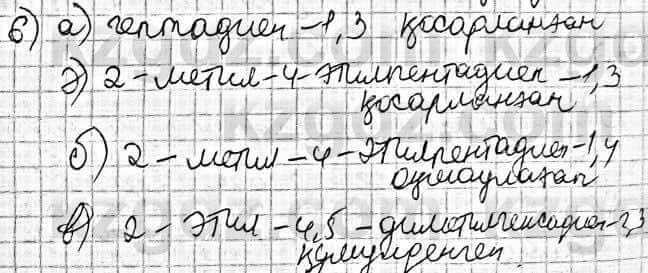 б) а) гептадиен -1,3 қосарланған
ә) 2-метил-4-этилпентадиен -1,3
қосарланған
б) 2-метил-4-этилпентадиен-1,4
оқшауланған
в) 2-этил-4,5-диметилгексадиен-2,3
кумулирленген